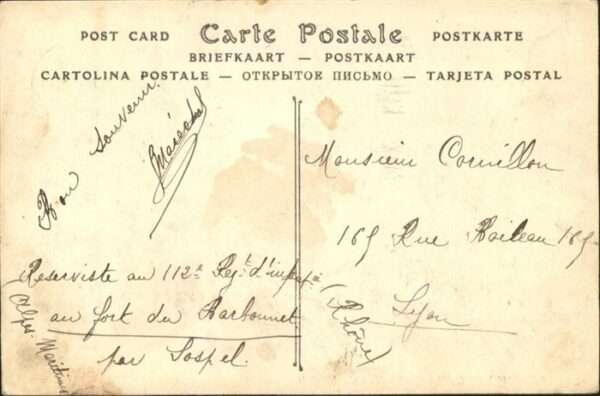 POST CARD Carte Postale POSTKARTE
BRIEFKAART — POSTKAART
CARTOLINA POSTALE — ОТКРЫТОЕ ПИСЬМО — TARJETA POSTAL
Bon Souvenir.
Maréchal
Reserviste au 112e Regt d'infie
au fort du Barbonnet
par Sospel.
(Alpes-Maritimes
Monsieur Cornillon
165 Rue Boileau 165
Lyon
(Rhône)